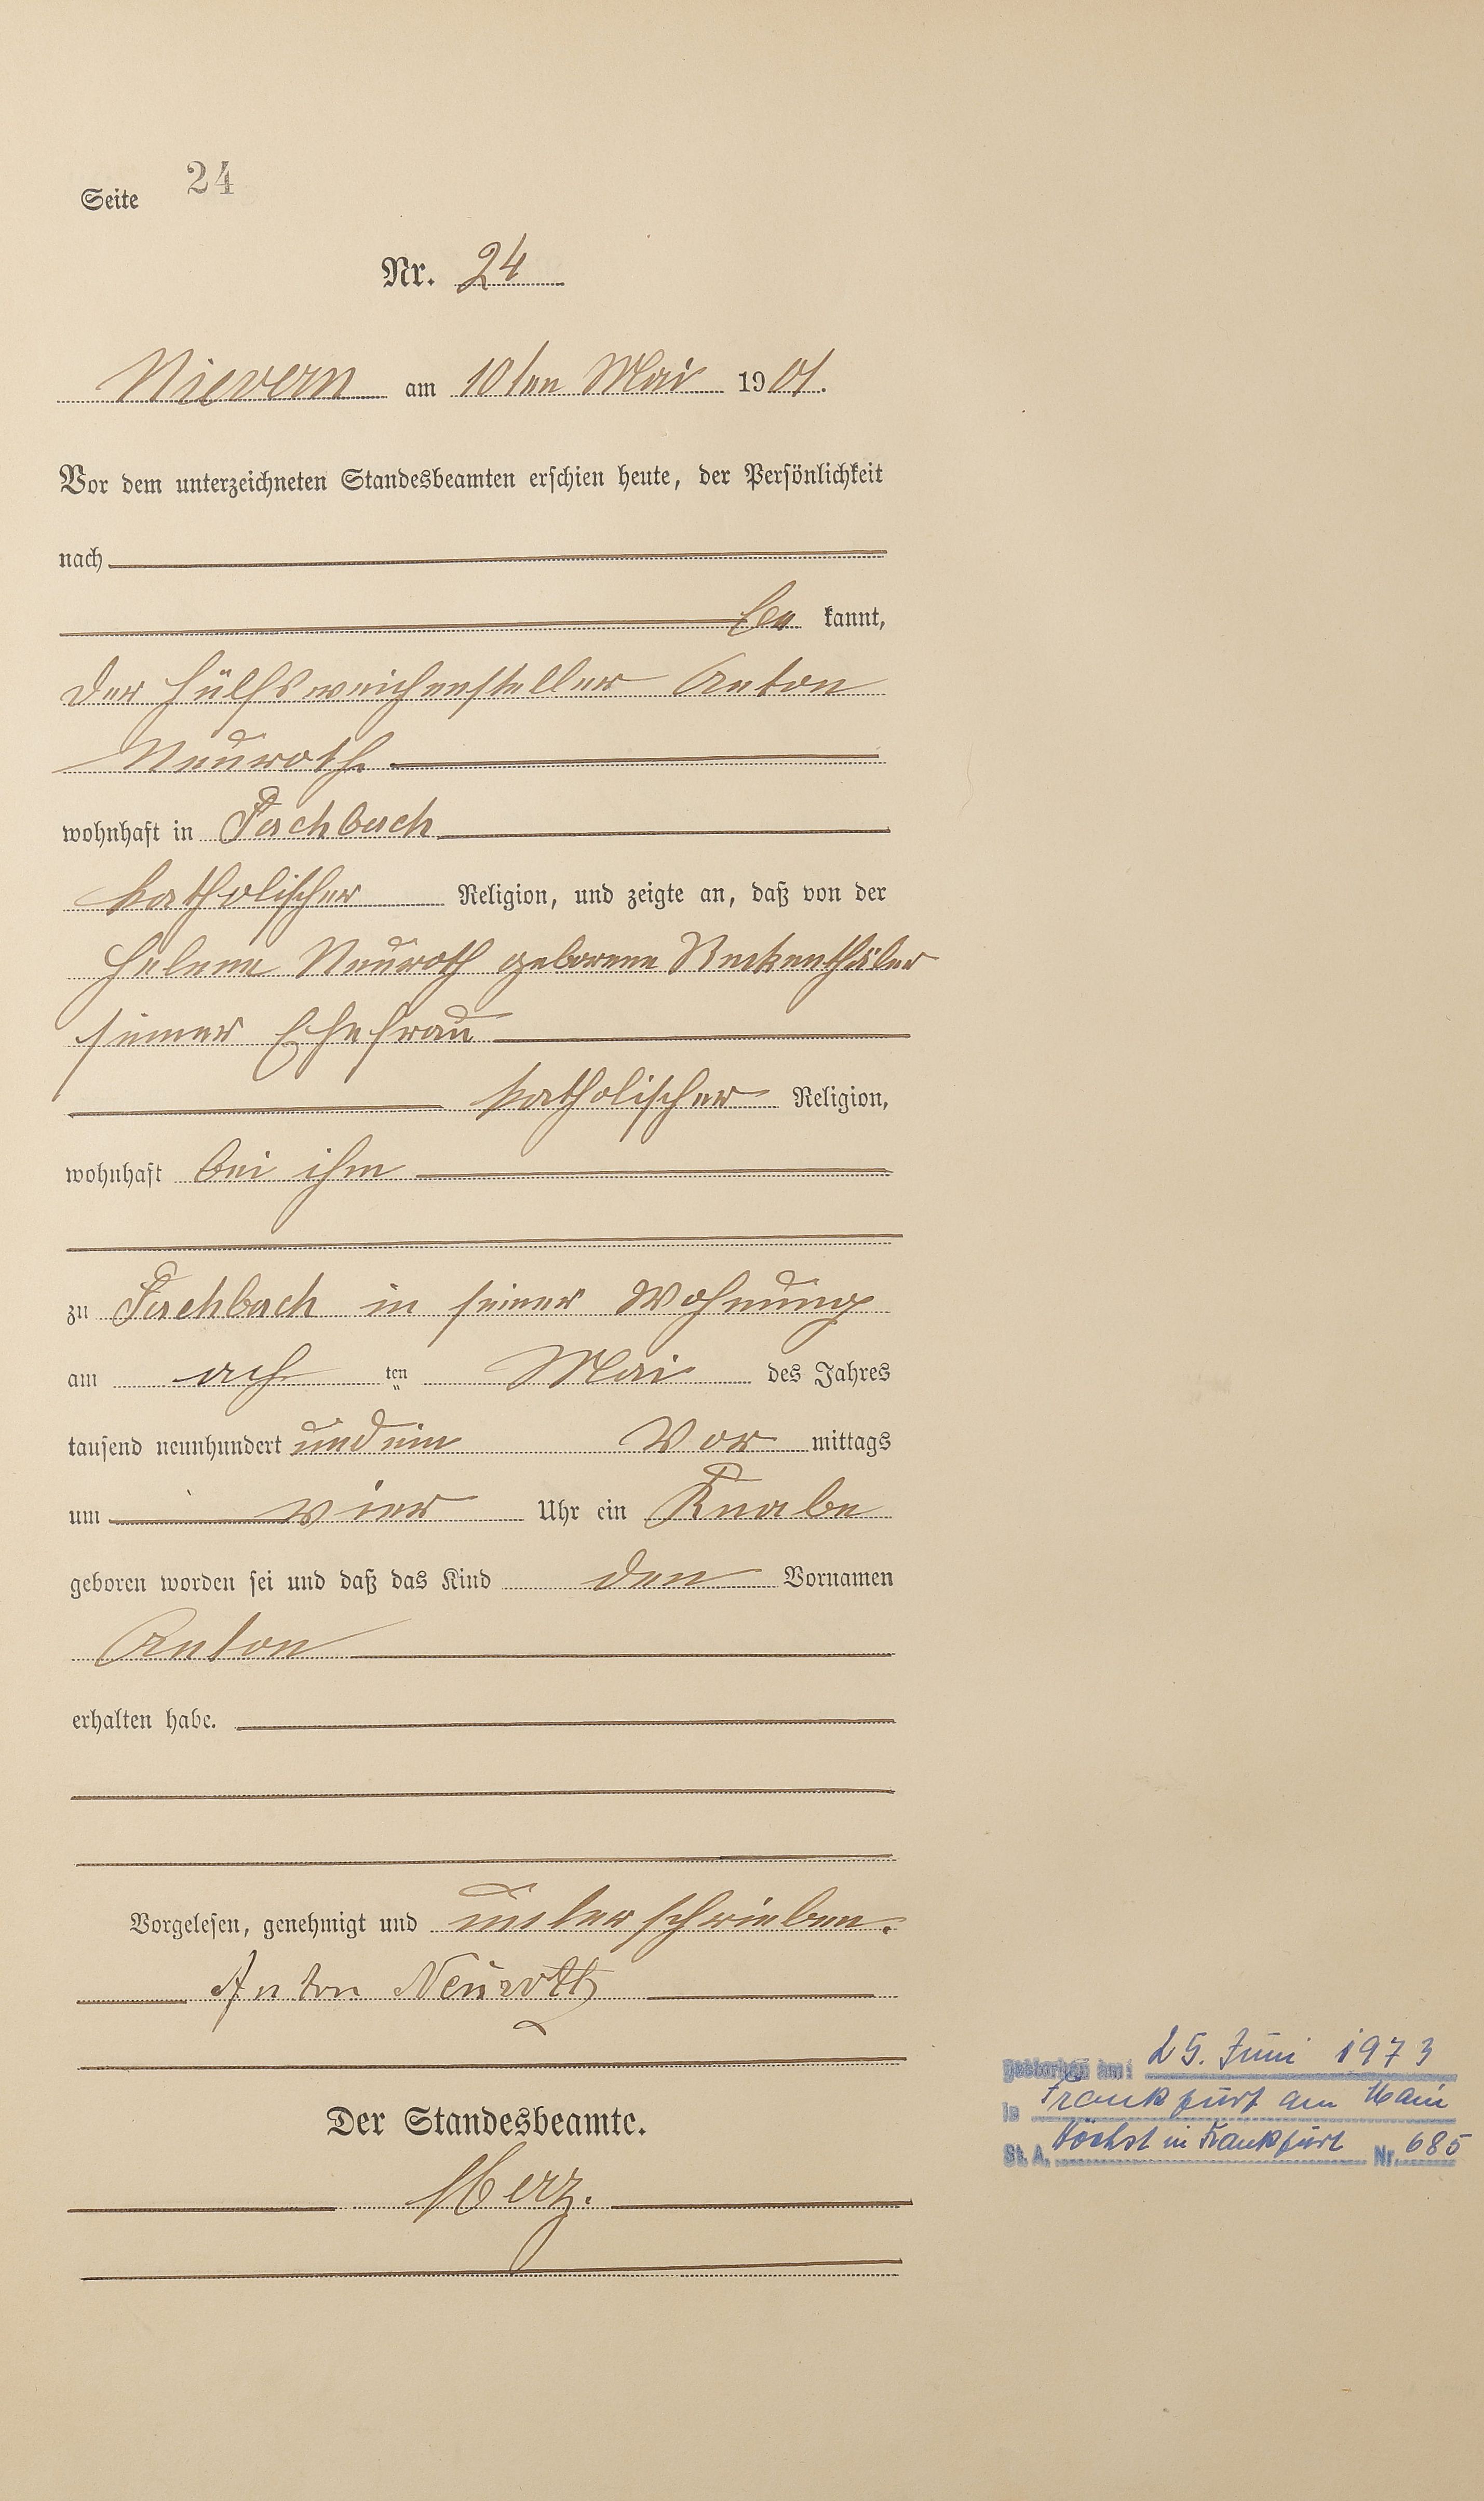 Seite 24
Nr. 24
Nievern am 10ten Mai 1901.
Vor dem unterzeichneten Standesbeamten erschien heute, der Persönlichkeit
nach
be kannt,
der Hülfsweichensteller Anton
Neuroth
wohnhaft in Fachbach
katholischer Religion, und zeigte an, daß von der
Helene Neuroth geborene
seiner Ehefrau
katholischer Religion,
wohnhaft bei ihm
zu Fachbach in seiner Wohnung
am ach ten Mai des Jahres
tausend neunhundert undein Vor mittags
um vier Uhr ein Knabe
geboren worden sei und daß das Kind den Vornamen
Anton
erhalten habe.
Vorgelesen, genehmigt und unterschrieben.
Anton Neuroth
Der Standesbeamte.
Merz.
gestorben am: 25. Juni 1973
in Frankfurt am Main
St. A. Höchst in Frankfurt Nr. 685